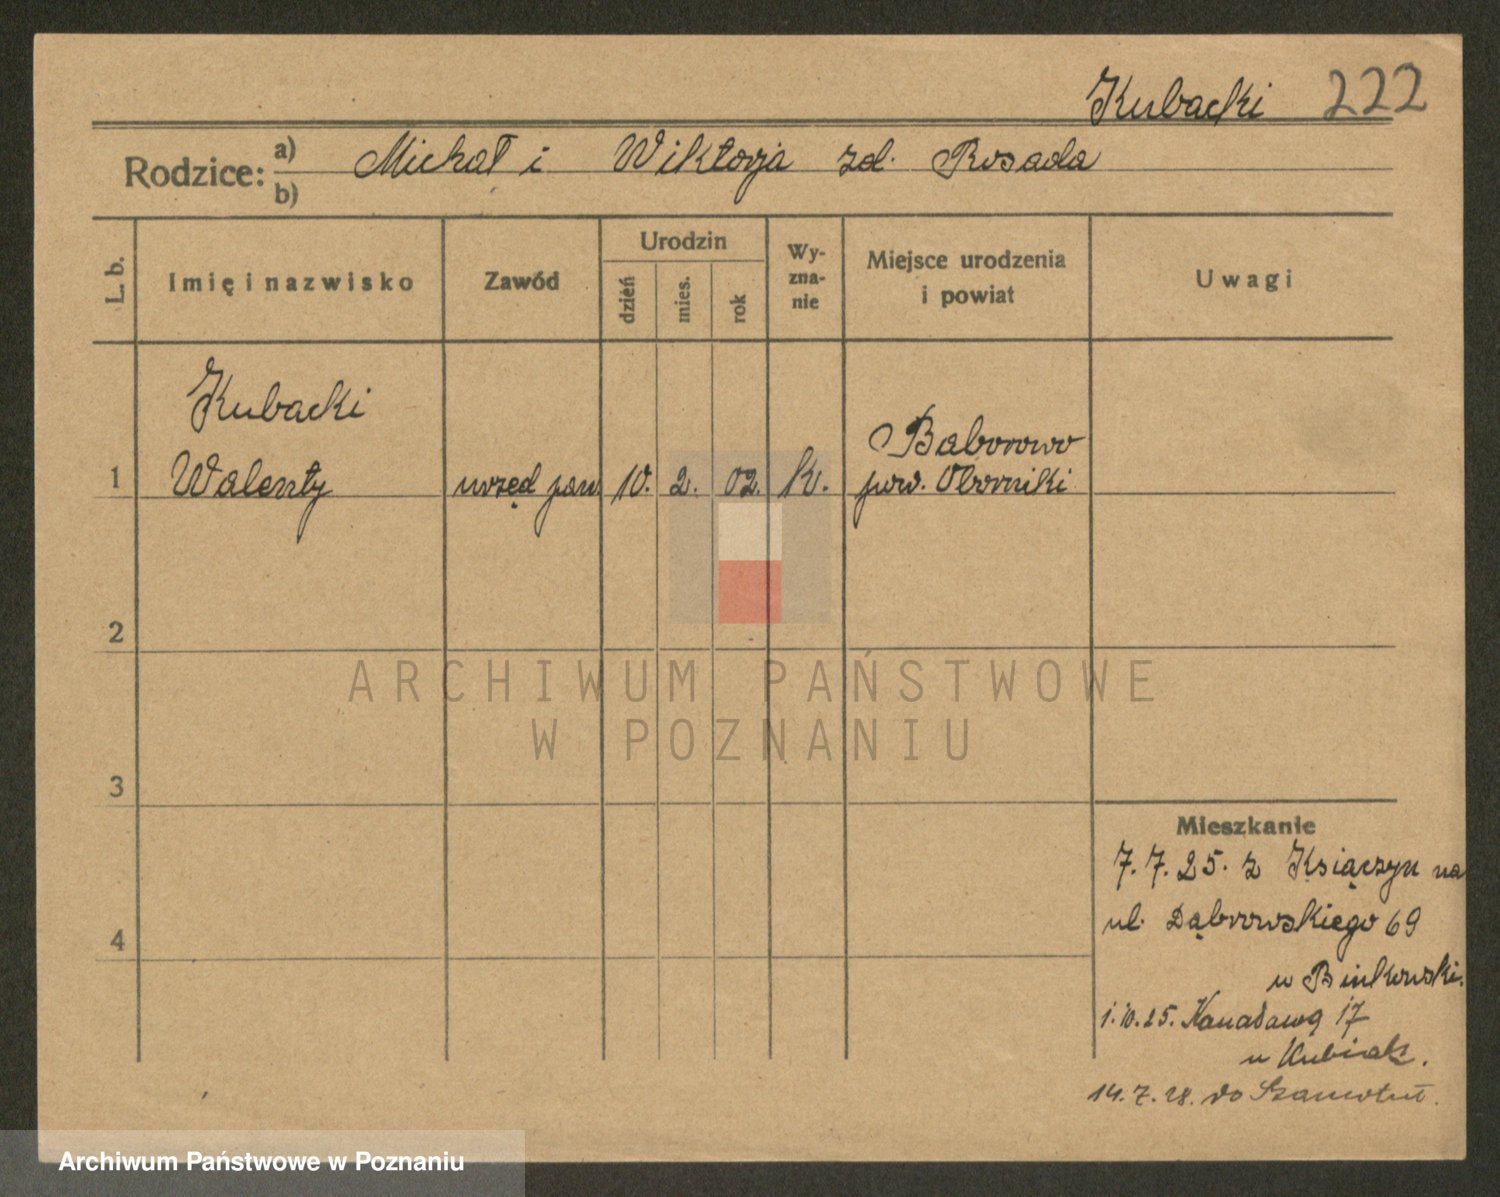 Kubacki 222
Rodzice: a) Michał i Wiktorja zd. Rosada
b)
L. b. Imię i nazwisko Zawód Urodzin dzień mies. rok Wy-zna-nie Miejsce urodzenia i powiat Uwagi
Kubacki
Baborowo
1 Walenty urzęd pow. 10. 2. 02. K. pow. Oborniki
2
3
4
Mieszkanie
7.7.25. z na
ul. Dąbrowskiego 69
u Binkowski.
1.10.25. Kanałową 17
u Kubiak.
14.7.28. do Szamotuł.
ARCHIWUM PAŃSTWOWE
W POZNANIU
Archiwum Państwowe w Poznaniu